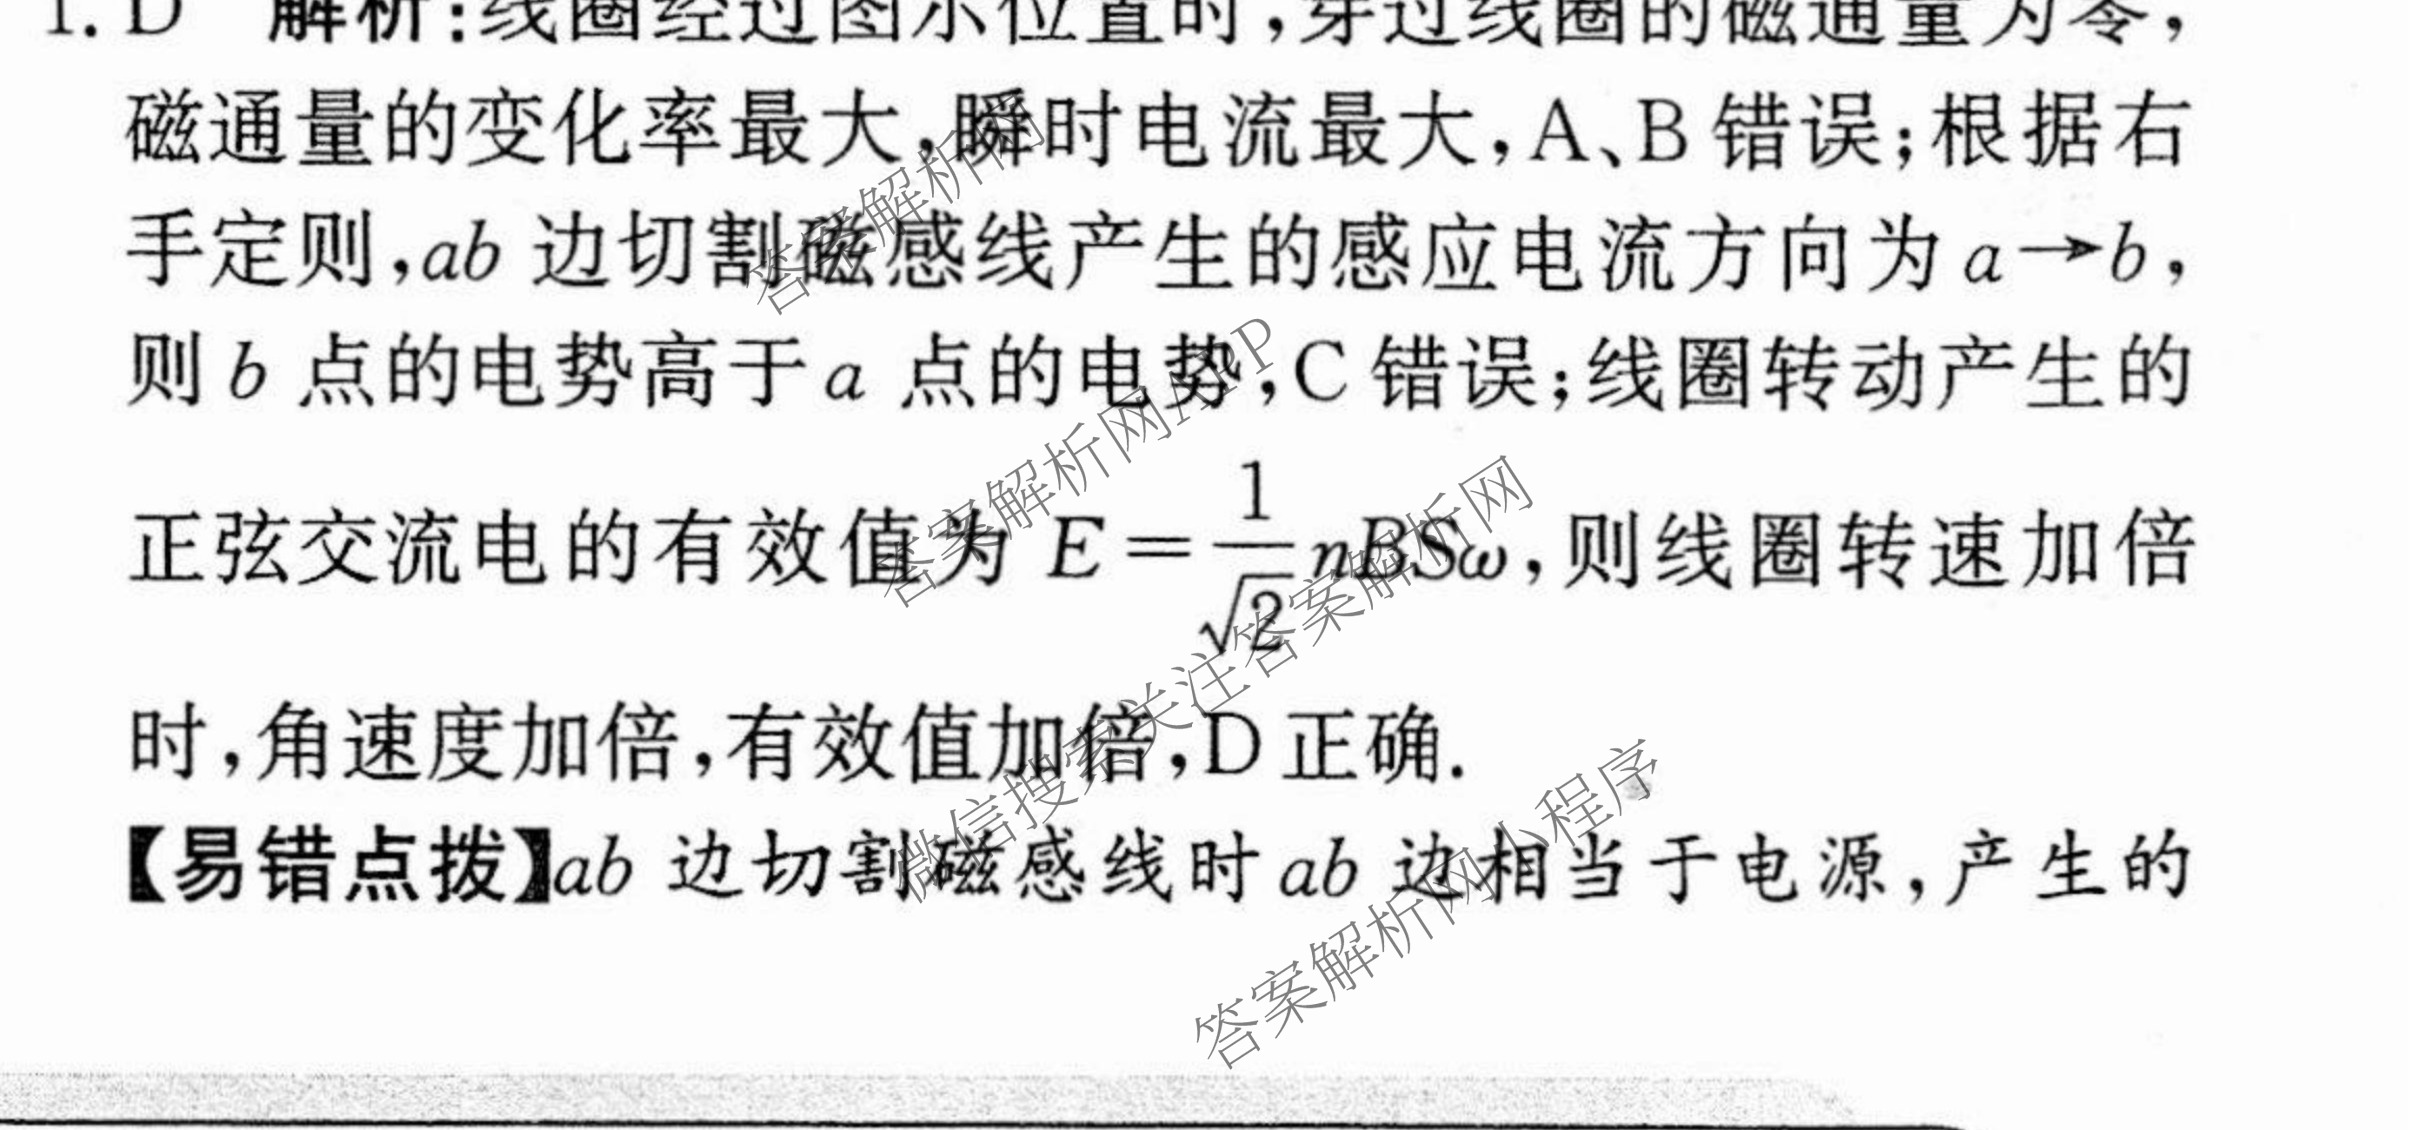 1. D 解析:线圈经过图示位置时,穿过线圈的磁通量为零,
磁通量的变化率最大,瞬时电流最大,A、B 错误;根据右
手定则,ab 边切割磁感线产生的感应电流方向为 a→b,
则 b 点的电势高于 a 点的电势,C 错误;线圈转动产生的
正弦交流电的有效值为 E=\frac{1}{\sqrt{2}}nBSω,则线圈转速加倍
时,角速度加倍,有效值加倍,D 正确.
【易错点拨】ab 边切割磁感线时 ab 边相当于电源,产生的
答案解析网
答案解析网APP
微信搜索关注答案解析网
答案解析网小程序